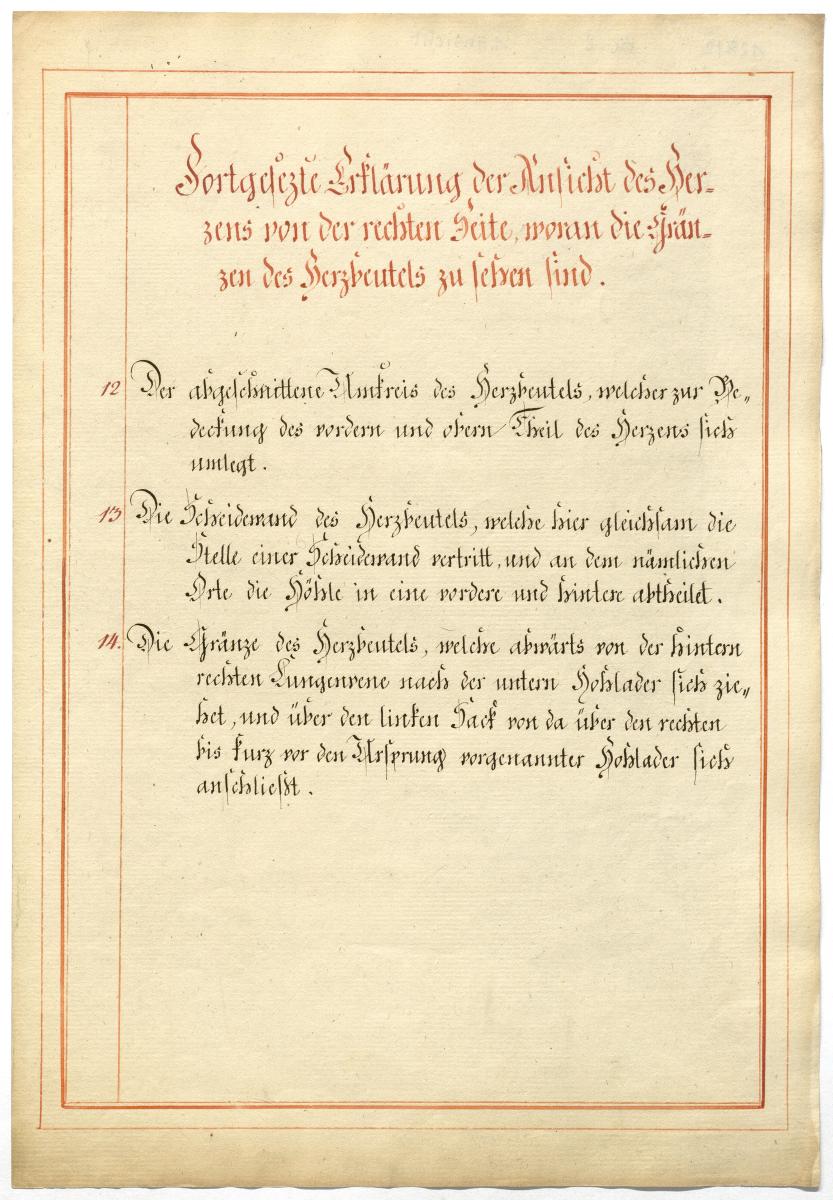 Fortgesezte Erklärung der Ansicht des Her-
zens von der rechten Seite, woran die Grän-
zen des Herzbeutels zu sehen sind.
12 Der abgeschnittene Umkreis des Herzbeutels, welcher zur Be„
deckung des vordern und obern Theil des Herzens sich
umlegt.
13 Die Scheidewand des Herzbeutels, welche hier gleichsam die
Stelle einer Scheidewand vertritt, und an dem nämlichen
Orte die Höhle in eine vordere und hintere abtheilet.
14. Die Gränze des Herzbeutels, welche abwärts von der hintern
rechten Lungenvene nach der untern Hohlader sich zie„
het, und über den linken Sack von da über den rechten
bis kurz vor den Ursprung vorgenannter Hohlader sich
anschließt.